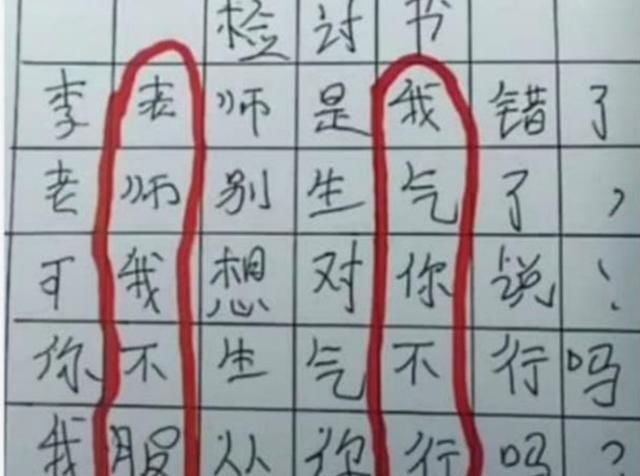 检讨书
李老师是我错了
老师别生气了,
可我想对你说!
你不生气不行吗
我服从你行吗?